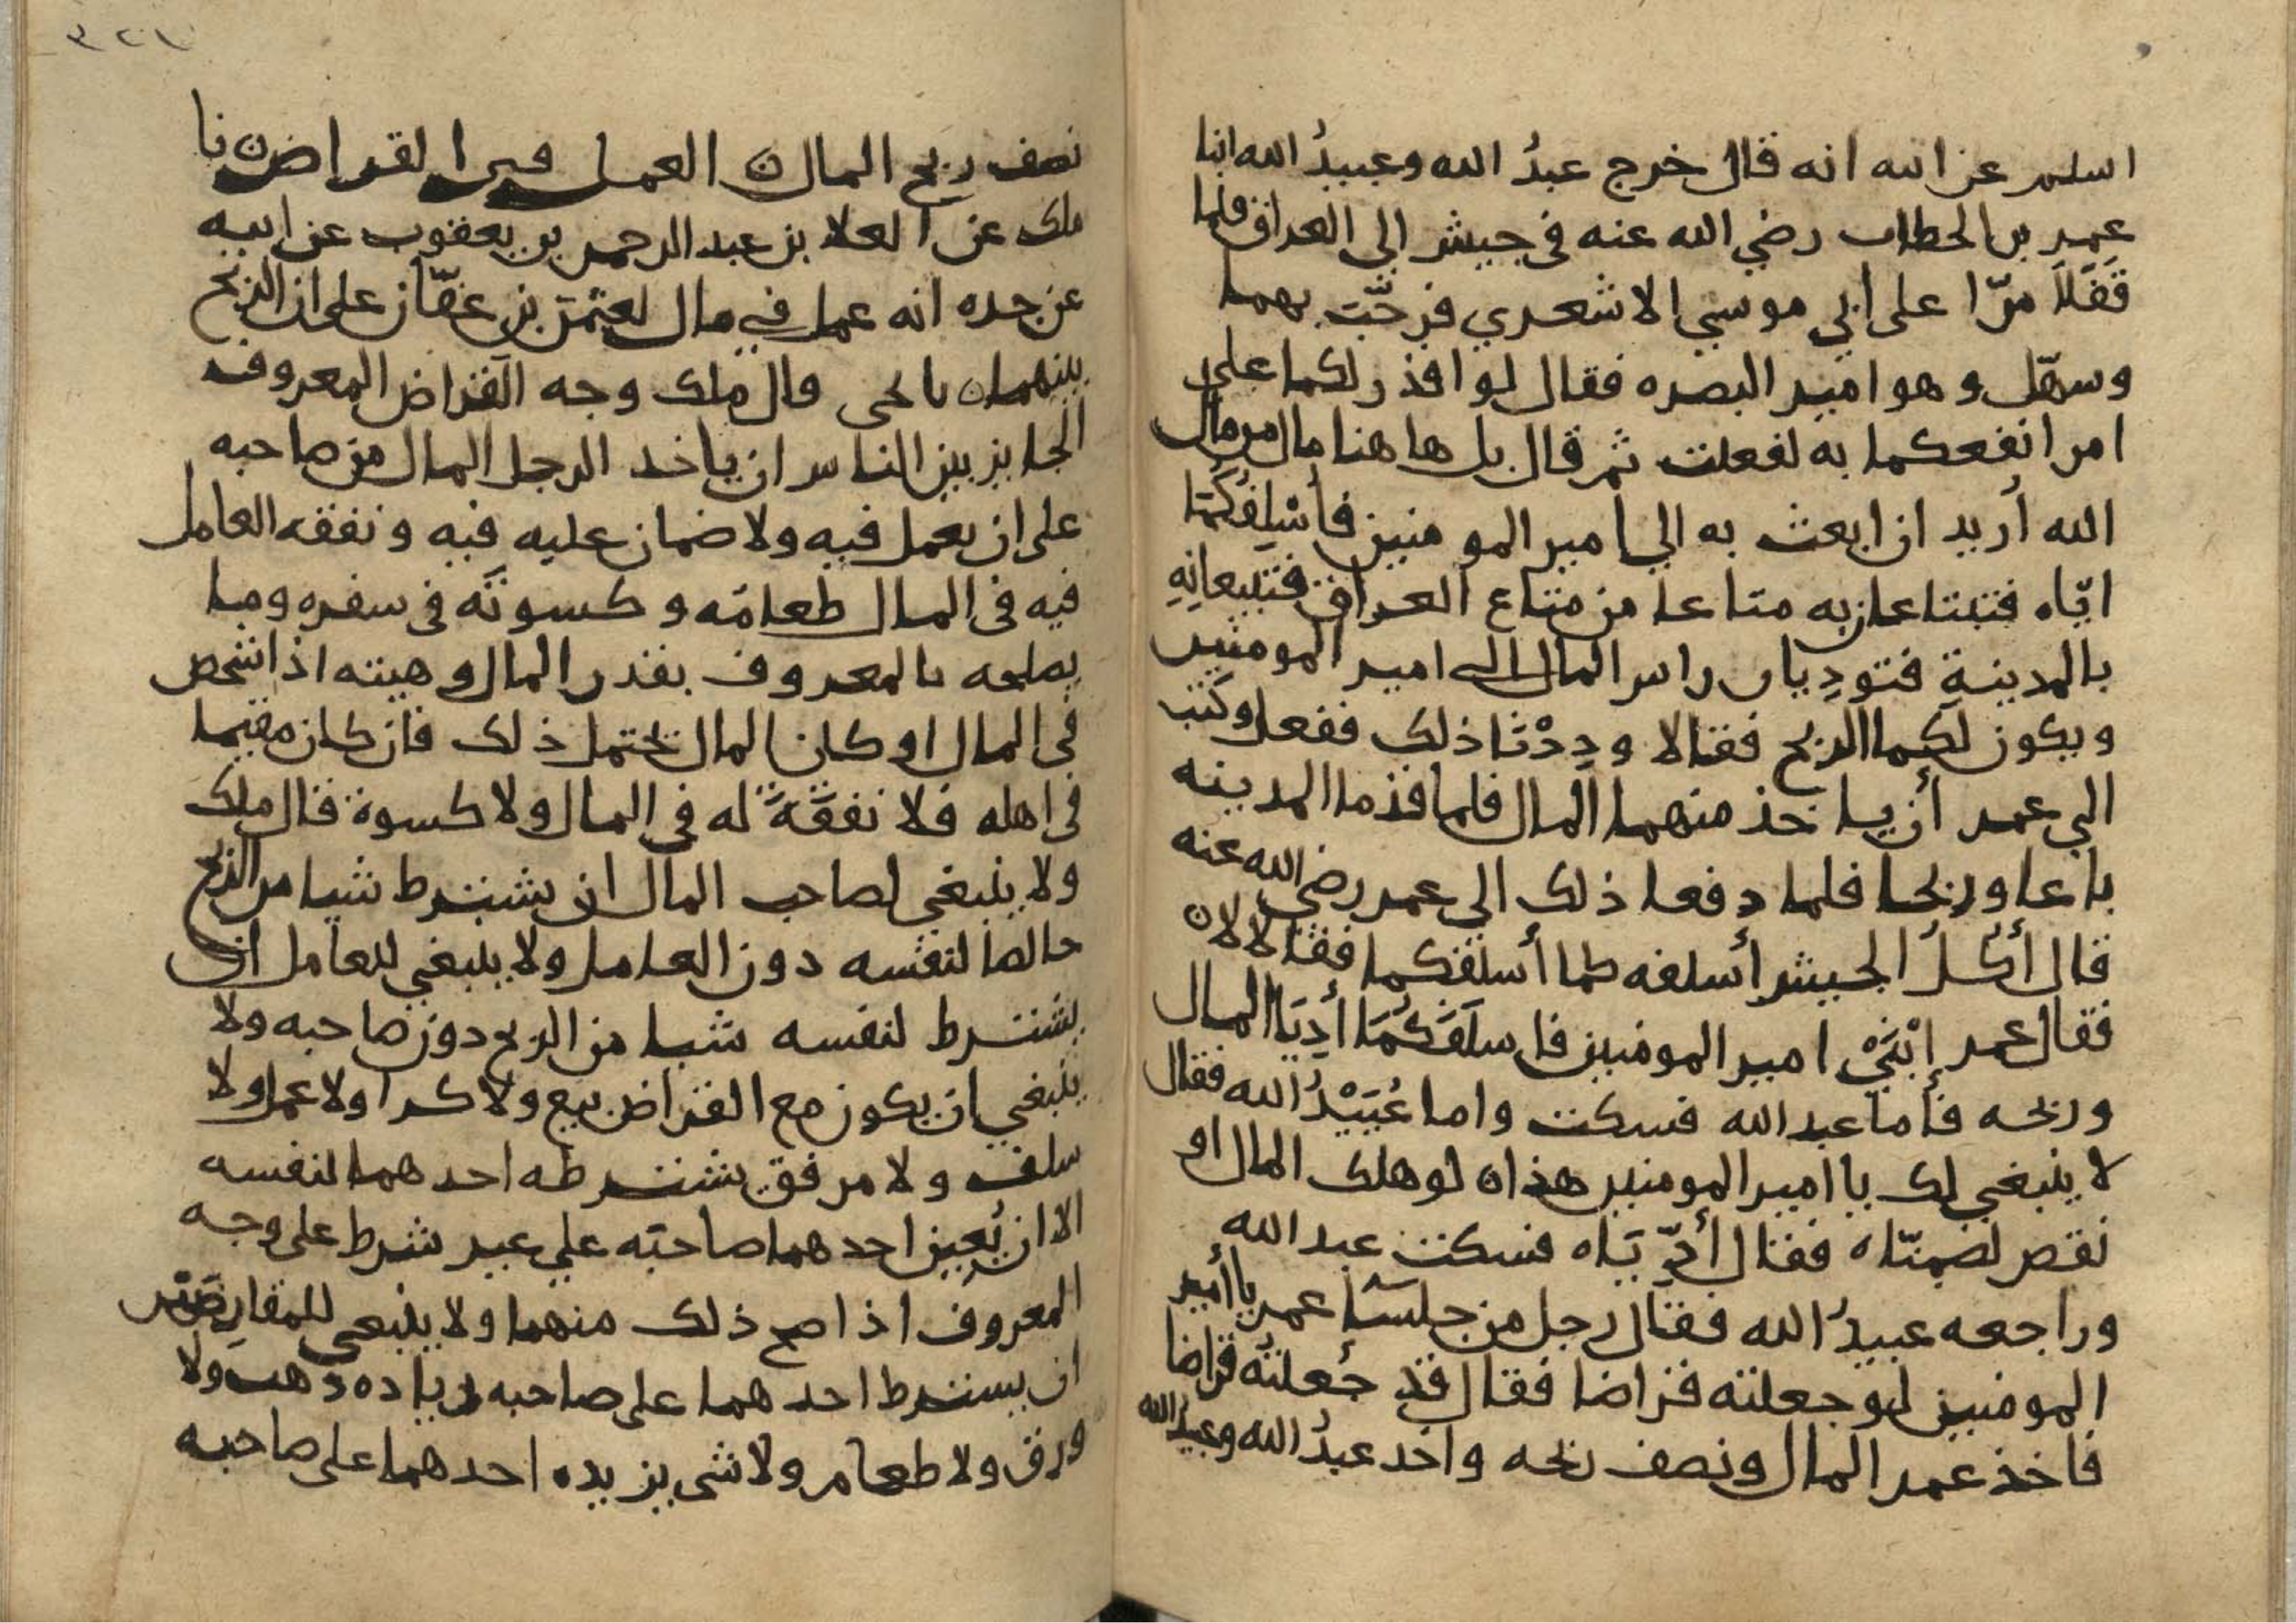 اسلم عن ابيه انه قال خرج عبدُ الله وعبيدُ الله ابنا
عمر بن الخطاب رضي الله عنه في جيش الى العراق فلما
قَفَلَا مرّا على ابي موسى الاشعري فرحّب بهما
وسهّل وهو امير البصره فقال لو اقدر لكما على
امر انفعكما به لفعلت ثم قال بل هاهنا مال من مال
الله أريد ان ابعث به الي امير المومنين فأُسْلِفُكُمَا
ايّاه فتبتاعان به متاعا من متاع العراق فتبيعانِهِ
بالمدينةِ فتودِيان راس المال الى امير المومنين
ويكون لكما الربح فقالا ودِدْنَا ذلك ففعل وكتب
الي عمر أن ياخذ منهما المال فلما قدما المدينه
باعا وربحا فلما دفعا ذلك الي عمر رضي الله عنه
قال أكلُّ الجيش أسلفه كما أسلفكما فقالا لا ن
فقال عمر إبْنَيْ امير المومنين فاسلَفَكُمَا أدِيَا المال
وربحه فأما عبد الله فسكت واما عُبَيْدُ الله فقال
لا ينبغي لك يا امير المومنين هذا ه لو هلك المال او
نقص لضمنّاه فقال أدِّيَاه فسكت عبد الله
وراجعه عبيدُ الله فقال رجل من جلسَا عمر يا أمير
المومنين لو جعلته قراضا فقال قد جعلته قراضا
فاخذ عمر المال ونصف ربحه واخد عبدُ الله وعبيد الله
٣٢١
نصف ربح المال ن العمل في القراض ن نا
ملك عن العلا بن عبد الرحمن بن يعقوب عن ابيه
عن جده انه عمل في مال لعثمن بن عفّان على ان الربح
بينهما ن نا يحى قال ملك وجه القراض المعروف
الجايز بين الناس ان ياخد الرجل المال من صاحبه
على ان يعمل فيه ولا ضمان عليه فيه ونفقه العامل
فيه في المال طعامَه وكسوتَه في سفره وما
يصلحه بالمعروف بقدر المال وهيته اذا شخص
في المال او كان المال يحتمل ذلك فان كان مقيما
في اهله فلا نفقَةَ له في المال ولا كسوة قال ملك
ولا ينبغي لصاحب المال ان يشترط شيا من الربح
خالصا لنفسه دون العامل ولا ينبغي للعامل ان
يشترط لنفسه شيا من الربح دون صاحبه ولا
ينبغي ان يكون مع القراض بيع ولا كرا ولا عمل ولا
سلف ولا مرفق يشترطه احدهما لنفسه
الا ان يُعِين احدهما صاحبَه علي غير شرط على وجه
المعروف اذا صح ذلك منهما ولا ينبغي للمقارِضَيْن
ان يسترط احدهما على صاحبه زياده دهب ولا
ورق ولا طعام ولا شي يزيده احدهما على صاحبه